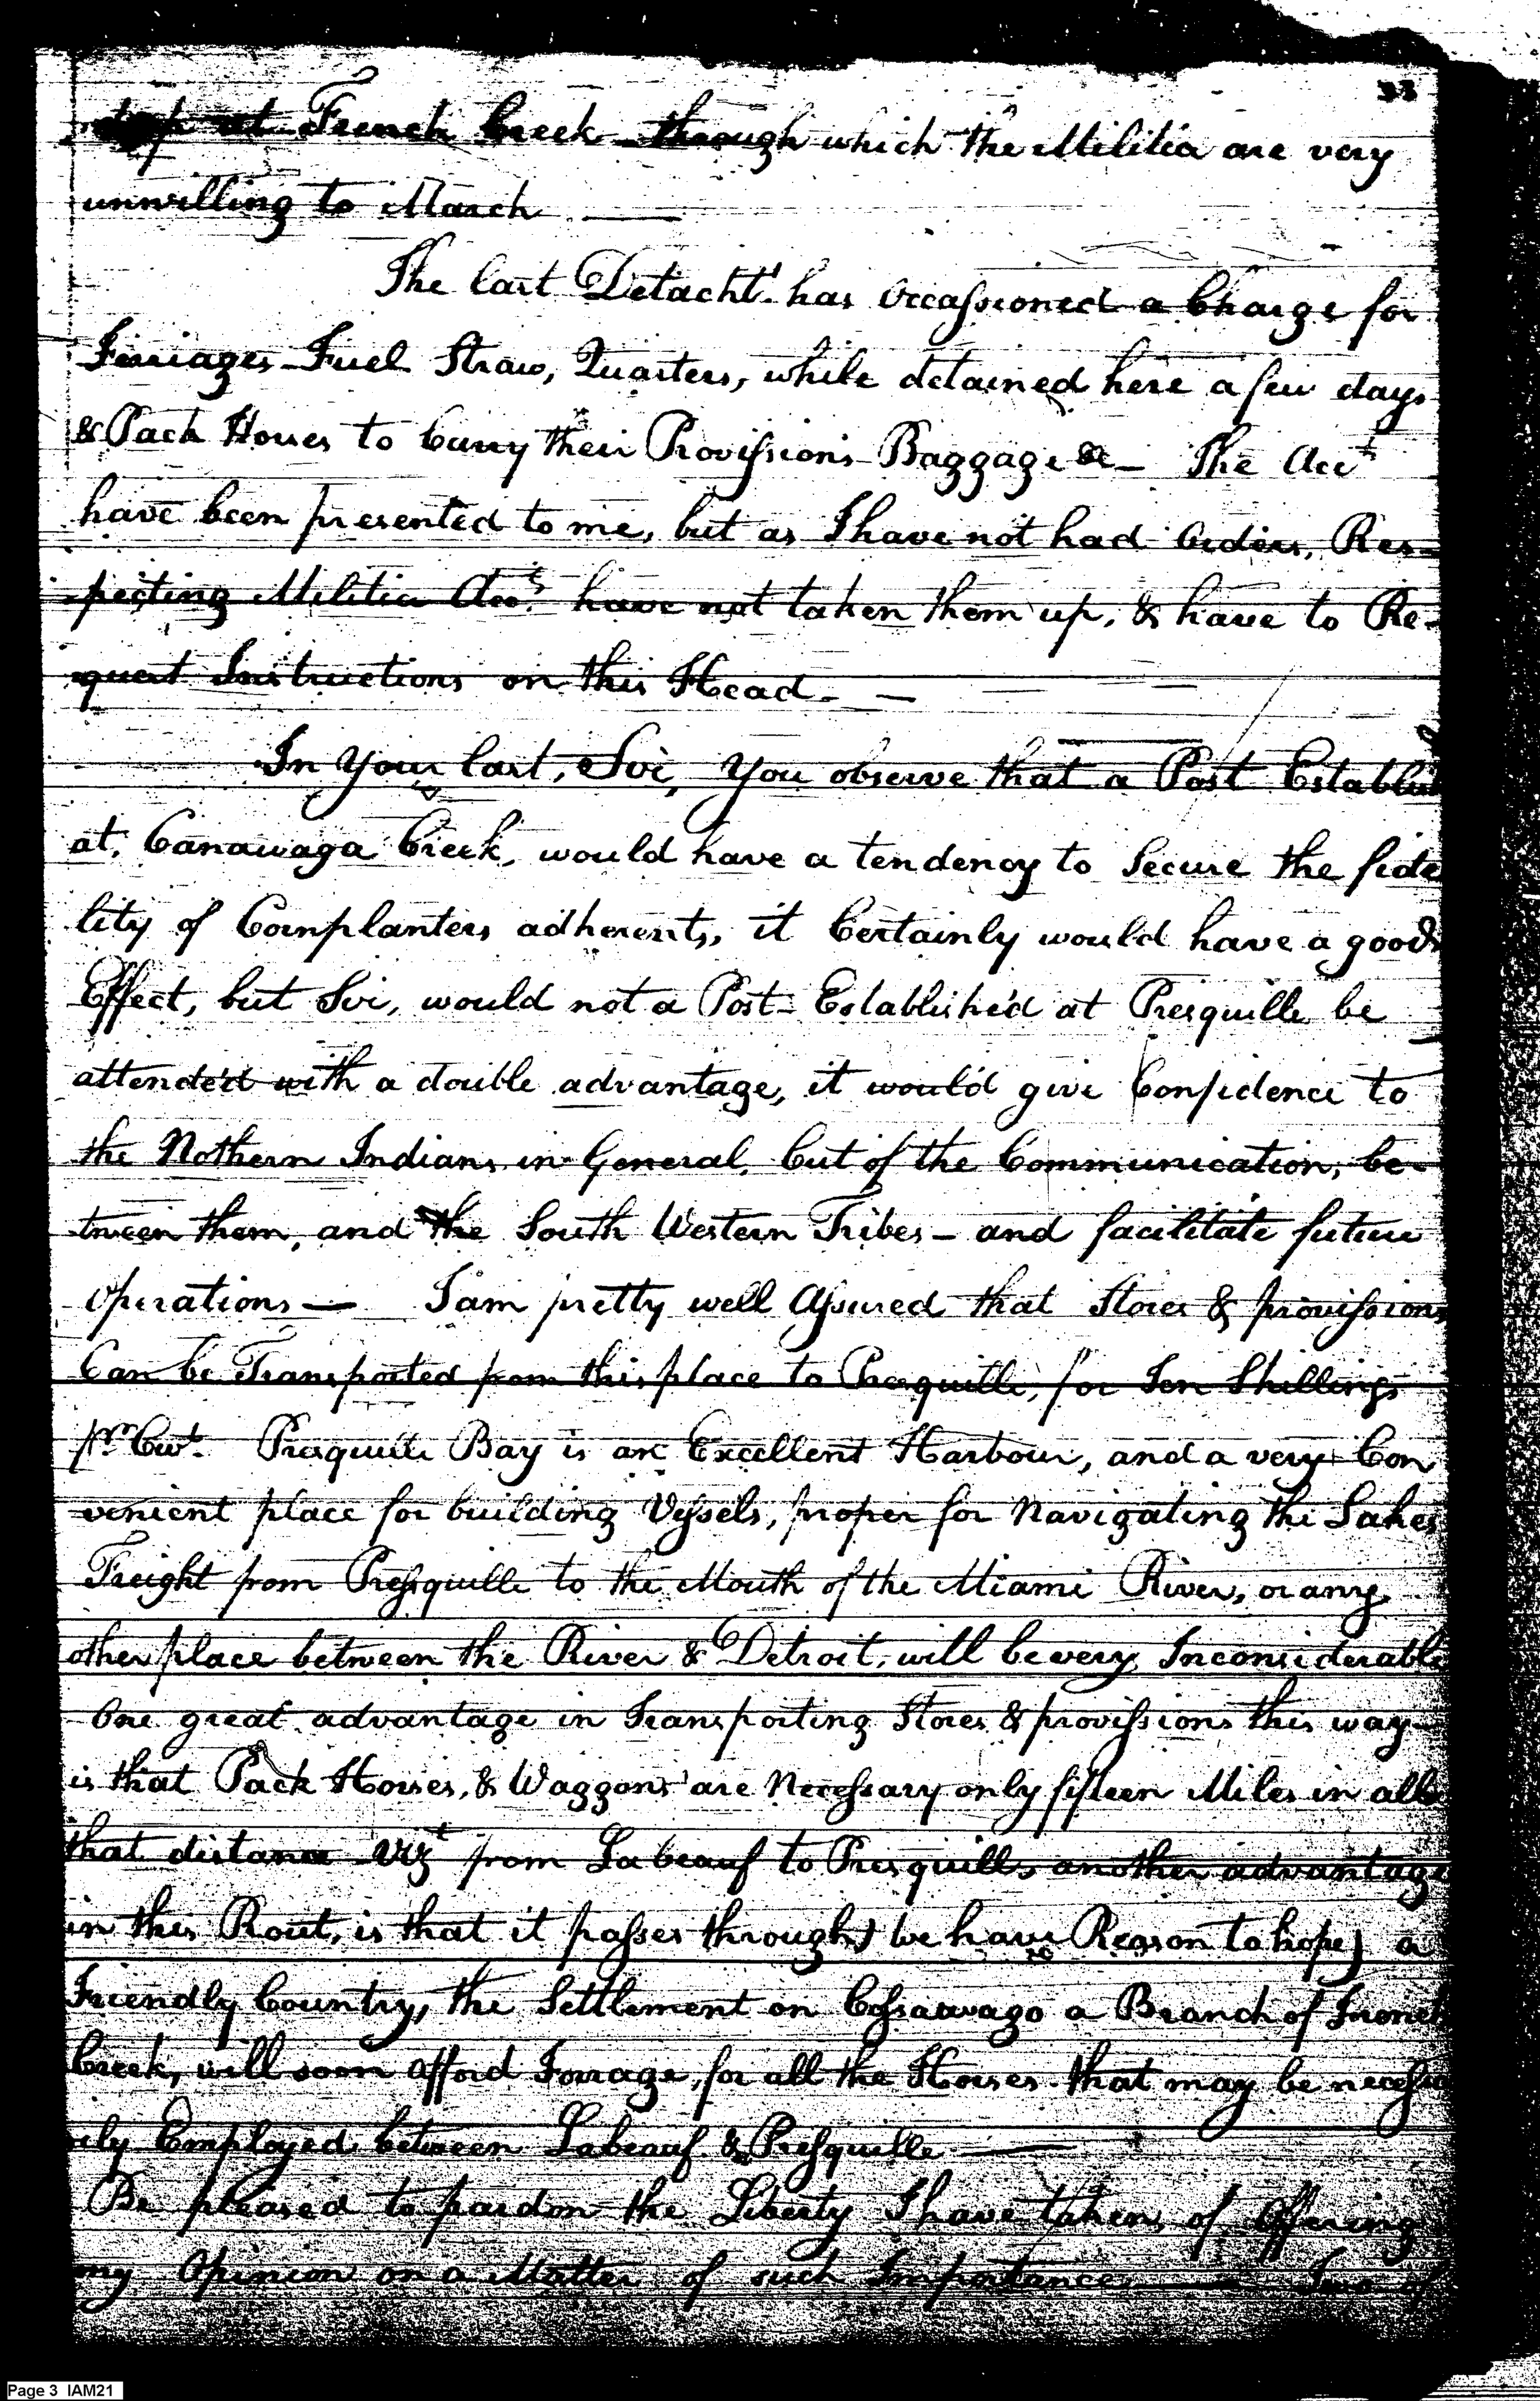 33
at French Creek through which the Militia are very
unwilling to March —
The last Detacht. has occassioned a Charge for
Ferriages Fuel Straw, Quarters, while detained here a few days
& Pack Horses to Carry their Provissions Baggage &c — The Acct
have been presented to me, but as I have not had Orders, Res-
-pecting Militia Accts. have not taken them up, & have to Re-
quest Instructions on this Head. —
In Your last, Sir, You observe that a Post Establish
at, Canawaga Creek, would have a tendency to Secure the fide
lity of Cornplanters adherents, it Certainly would have a good
Effect, but Sir, would not a Post Established at Presquille be
attended with a double advantage, it would give Confidence to
the Nothern Indians in General, Cut of the Communication, be-
tween them, and the South Western Tribes — and facilitate future
Operations — I am pretty well Assured that Stores & provissions
Can be Transported from this place to Presquille, for Ten Shillings
pr. Cwt. Presquile Bay is an Excellent Harbour, and a very Con
venient place for building Vessels, proper for Navigating the Lakes
Freight from Presquille to the Mouth of the Miami River, or any
other place between the River & Detroit, will be very Inconsiderable
One great advantage in Transporting Stores & provissions this way
is that Pack Horses, & Waggons are Necessary only fifteen Miles in all
that distance Vizt from Labeauf to Presquille another advantage
in this Rout, is that it passes through) we have Reason to hope) a
Friendly Country, the Settlement on Cassawago a Branch of French
Creek, will soon afford Forrage, for all the Horses that may be necessa
rily Employed between Labeauf & Presquille —
Be pleased to pardon the Liberty I have taken, of Offering
my Opinion on a Matter of such Importance — Two of
Page 3 IAM21